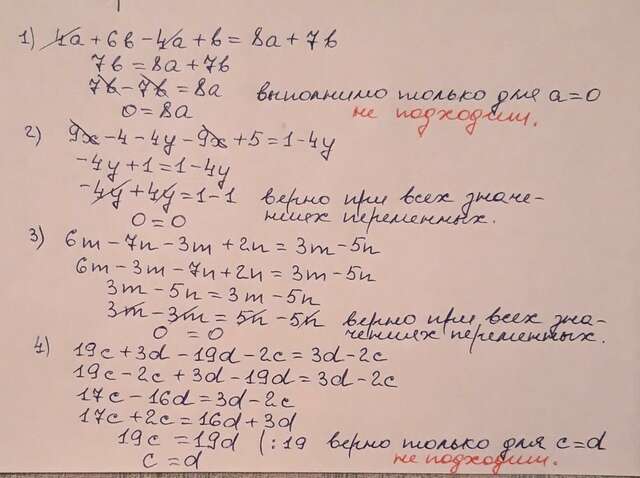 1) 4a + 6b - 4a + b = 8a + 7b
7b = 8a + 7b
7b - 7b = 8a выполнимо только для a = 0
0 = 8a не подходит.
2) 9x - 4 - 4y - 9x + 5 = 1 - 4y
-4y + 1 = 1 - 4y
-4y + 4y = 1 - 1 верно при всех значе-
0 = 0 ниях переменных.
3) 6m - 7n - 3m + 2n = 3m - 5n
6m - 3m - 7n + 2n = 3m - 5n
3m - 5n = 3m - 5n
3m - 3m = 5n - 5n верно при всех зна-
0 = 0 чениях переменных.
4) 19c + 3d - 19d - 2c = 3d - 2c
19c - 2c + 3d - 19d = 3d - 2c
17c - 16d = 3d - 2c
17c + 2c = 16d + 3d
19c = 19d (:19 верно только для c = d
c = d не подходит.